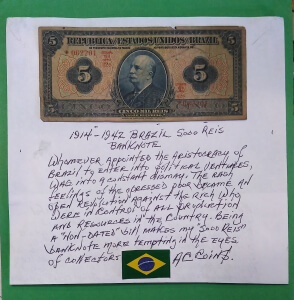 REPUBLICA DOS ESTADOS UNIDOS DO BRAZIL
5
5
CINCO MIL REIS
1914-1942 BRAZIL 5000 REIS
BANKNOTE
WHOMEVER APPOINTED THE ARISTOCRACY OF
BRAZIL TO ENTER INTO POLITICAL VENTURES,
WAS INTO A CONSTANT DISMAY. THE RASH
FEELINGS OF THE OPPRESSED POOR BECAME AN
OPEN REVOLUTION AGAINST THE RICH WHO
WERE IN CONTROL OF ALL PRODUCTION
AND RESOURCES IN THE COUNTRY. BEING
A "NON-DATED" BILL MAKES MY "5000 REIS"
BANKNOTE MORE TEMPTING IN THE EYES
OF COLLECTORS
A.C. COINS.